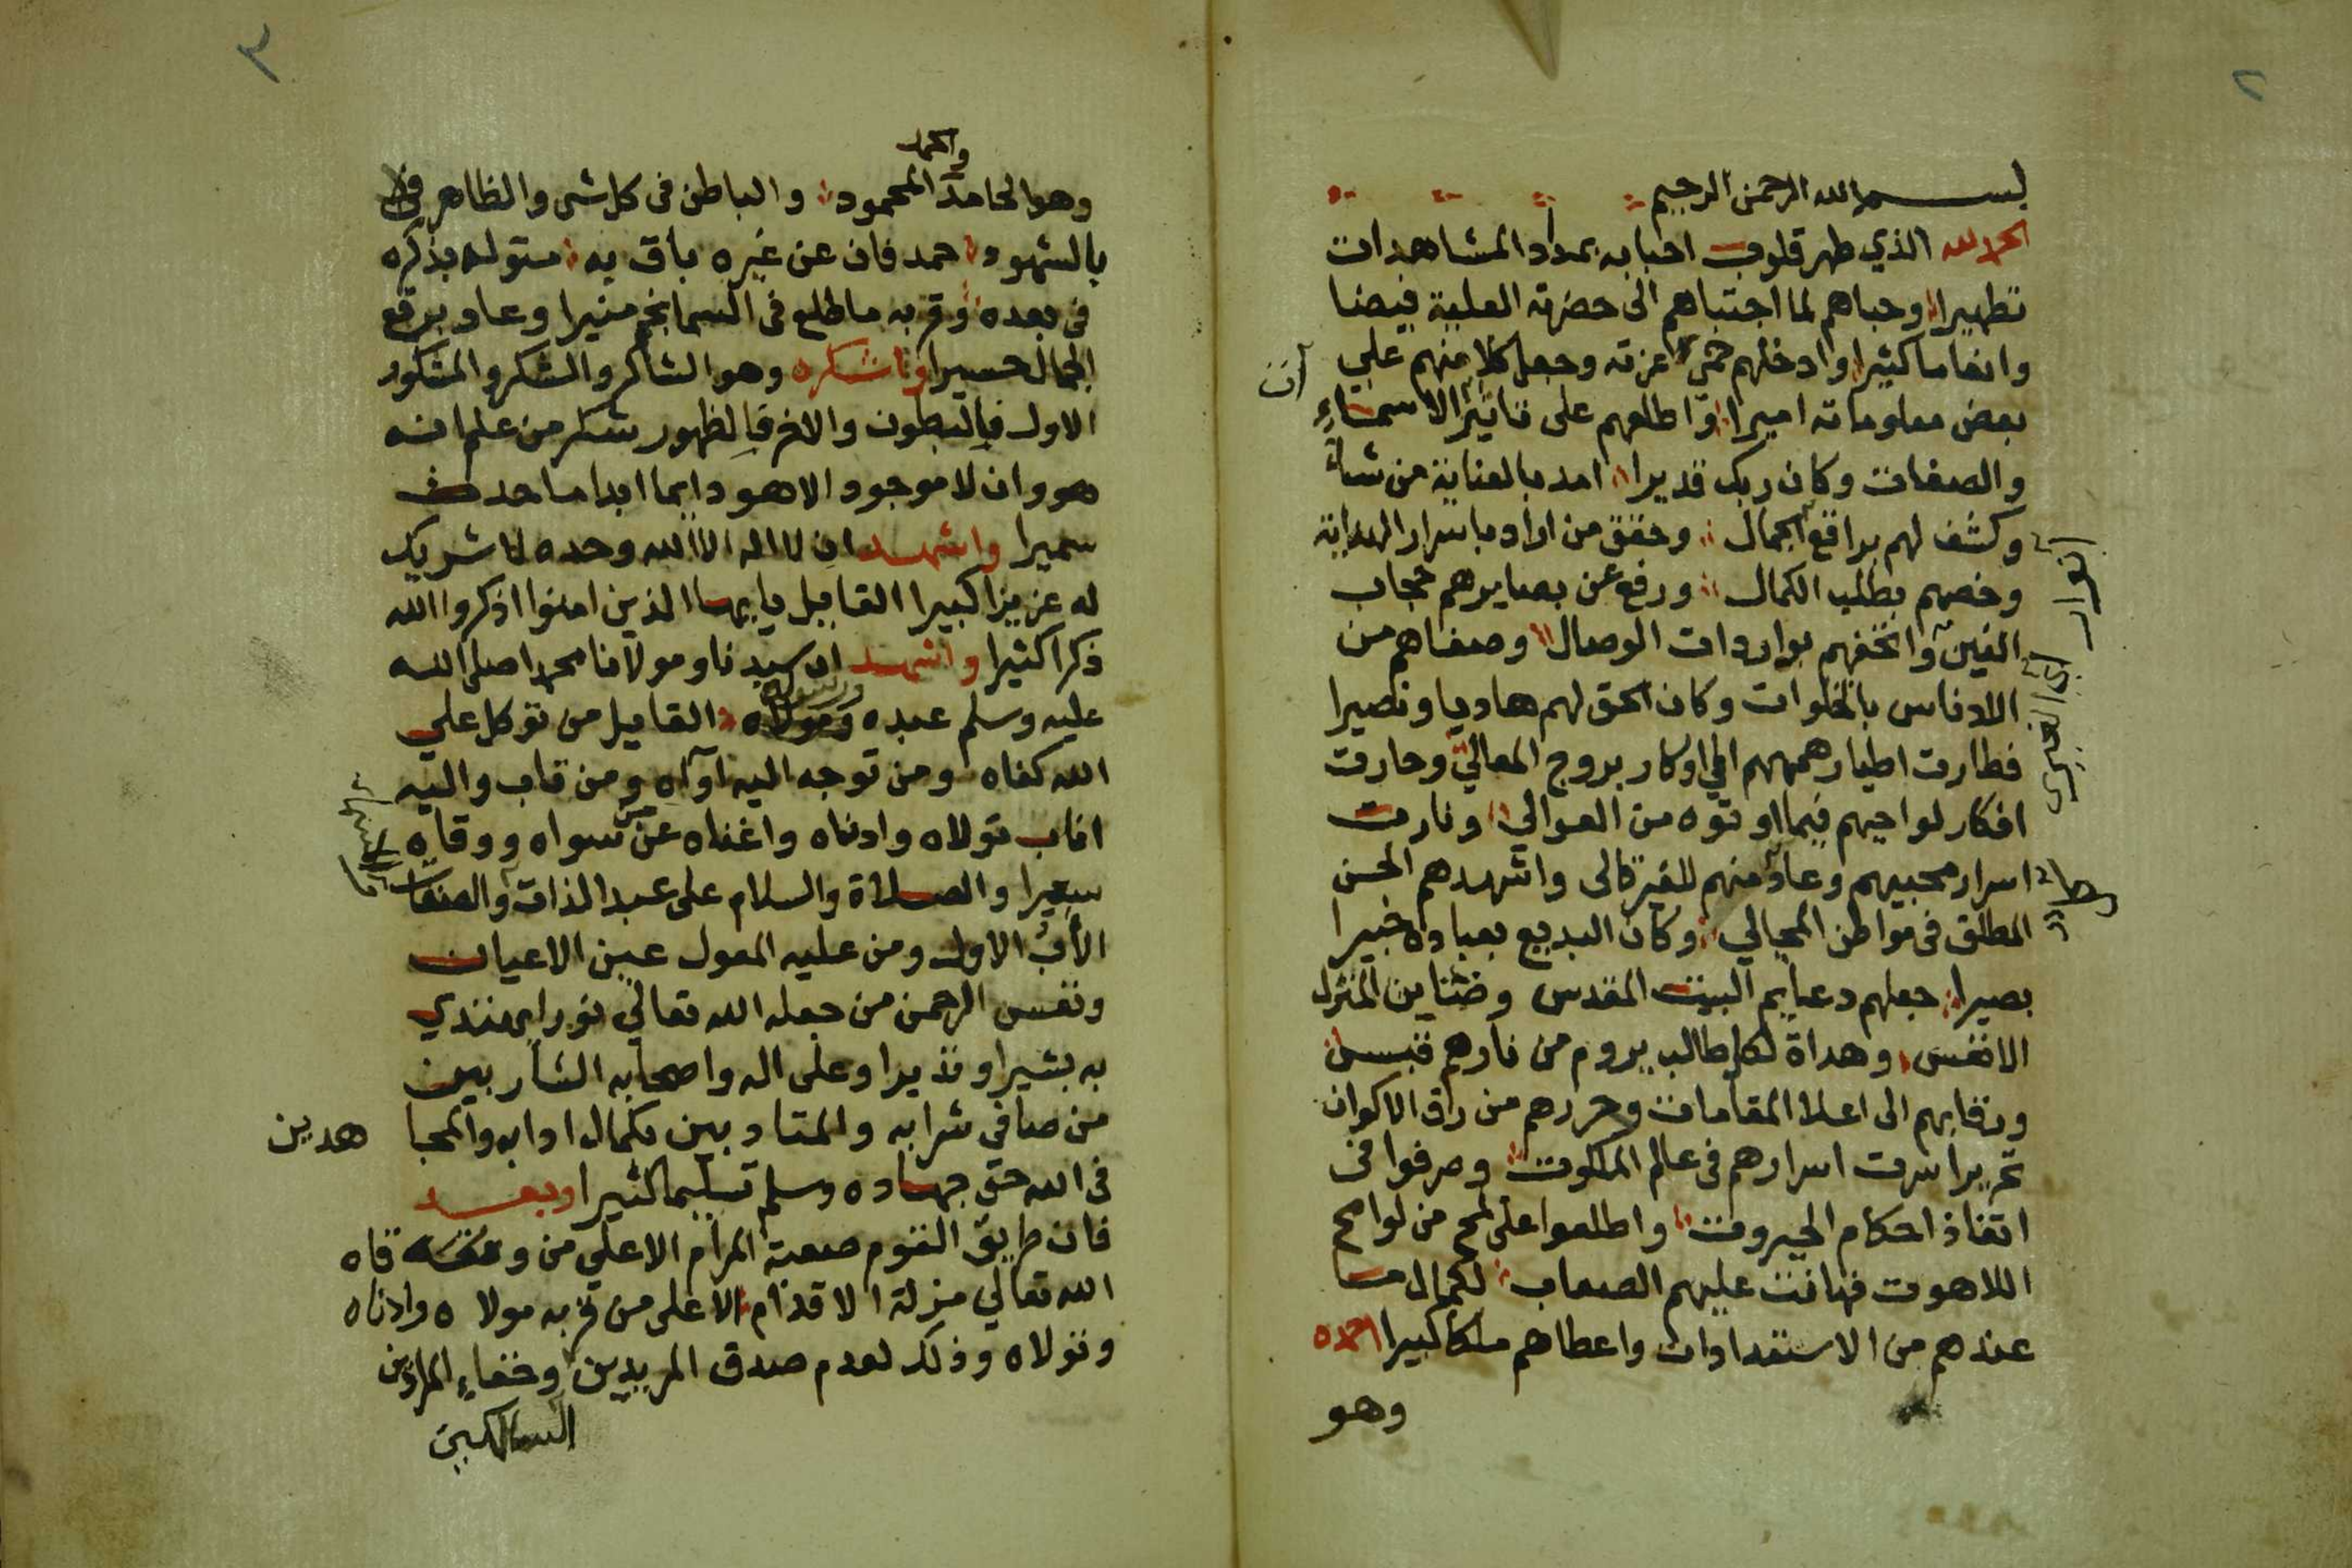 ٢
بسم الله الرحمن الرحيم
الحمد لله الذي طهر قلوب احبابه بمداد المشاهدات
تطهيرا وحباهم لما اجتباهم الى حضرته العلية فيضا
وانعاما كثيرا وادخلهم حمى عزته وجعل كلا منهم علي
بعض معلوماته اميرا واطلعهم على تاثير الاسماء
والصفات وكان ربك قديرا امد بالعناية من شاء
وكشف لهم براقع الجمال وحقق من اراد باسرار الهداية
انوار
وخصهم بطلب الكمال ورفع عن بصايرهم حجاب
الغين واتحفهم بواردات الوصال وصفاهم من
الادناس بالخلوات وكان الحق لهم هاديا ونصيرا
فطارت اطيار هممهم الي اوكار بروج المعالي وحارت
افكار لواحيهم فيما اوتوه من العوالي ونارت
اسرار محبيهم وعاد منهم للغير كالى واشهدهم الحسن
المطلق في مواطن المجالي وكان البديع بعباده خبيرا
بصيرا جعلهم دعايم البيت المقدس وضناين المنزل
الانفس وهداة لكل طالب يروم من نارهم قبس
ورقابهم الى اعلا المقامات وحررهم من رق الاكوان
تحريرا سرت اسرارهم في عالم الملكوت وصرفوا في
اتفاذ احكام الجبروت واطلعوا على لمح من لوامح
اللاهوت فهانت عليهم الصعاب لكمال ما
عندهم من الاستعدادات واعطاهم ملكا كبيرا احمده
وهو
٣
والحمد
وهو الحامد المحمود والباطن في كل شى والظاهر في
بالشهود احمد فان عن غيره باق به متوله بذكره
في بعده وقربه ما طلع في السما نجم منيرا وعاد برقع
الجمال حسيرا واشكره وهو الشاكر والشكر والمشكور
الاول في البطون والاخر في الظهور شكر من علم انه
هو وان لا موجود الا هو دايما ابدا ما حدث
سميرا واشهد ان لا اله الا الله وحده لا شريك
له عزيزا كبيرا القايل يا يها الذين امنوا اذكروا الله
ذكرا كثيرا واشهد ان سيدنا ومولانا محمدا صلى الله
ورسوله
عليه وسلم عبده القايل من توكل علي
الله كفاه ومن توجه اليه آواه ومن تاب واليه
اناب تولاه وادناه واغناه عن سواه ووقاه
سعيرا والصلاة والسلام على عبد الذات والصفات
الأب الاول ومن عليه المعول عين الاعيان
ونفس الرحمن من جعله الله تعالي نورا يهتدي
به بشيرا ونذيرا وعلى اله واصحابه الشاربين
من صافي شرابه والمتادبين بكمال ادابه والمجا هدين
في الله حق جهاده وسلم تسليما كثيرا وبعد
فان طريق القوم صعبة المرام الا علي من وفقه
الله تعالي مزلة الاقدام الا على من قربه مولاه وادناه
وتولاه وذلك لعدم صدق المريدين وخفاء المرادين
السالكين